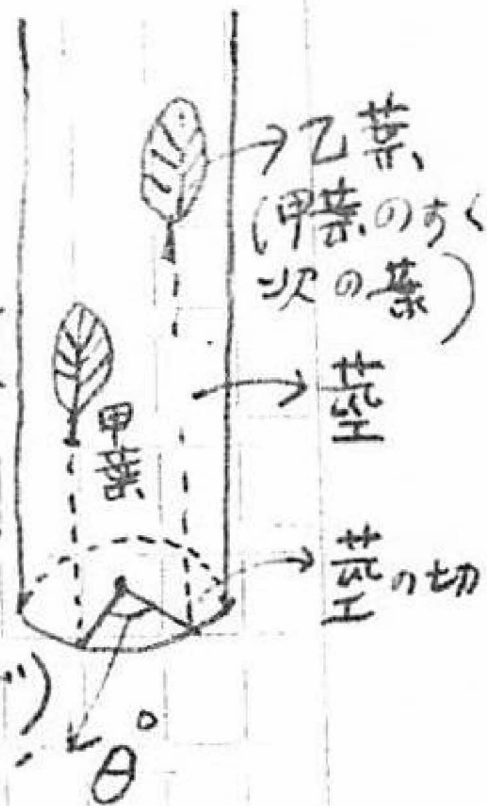 乙葉
(甲葉のすぐ
次の葉)
甲葉
茎
茎の切
θ°